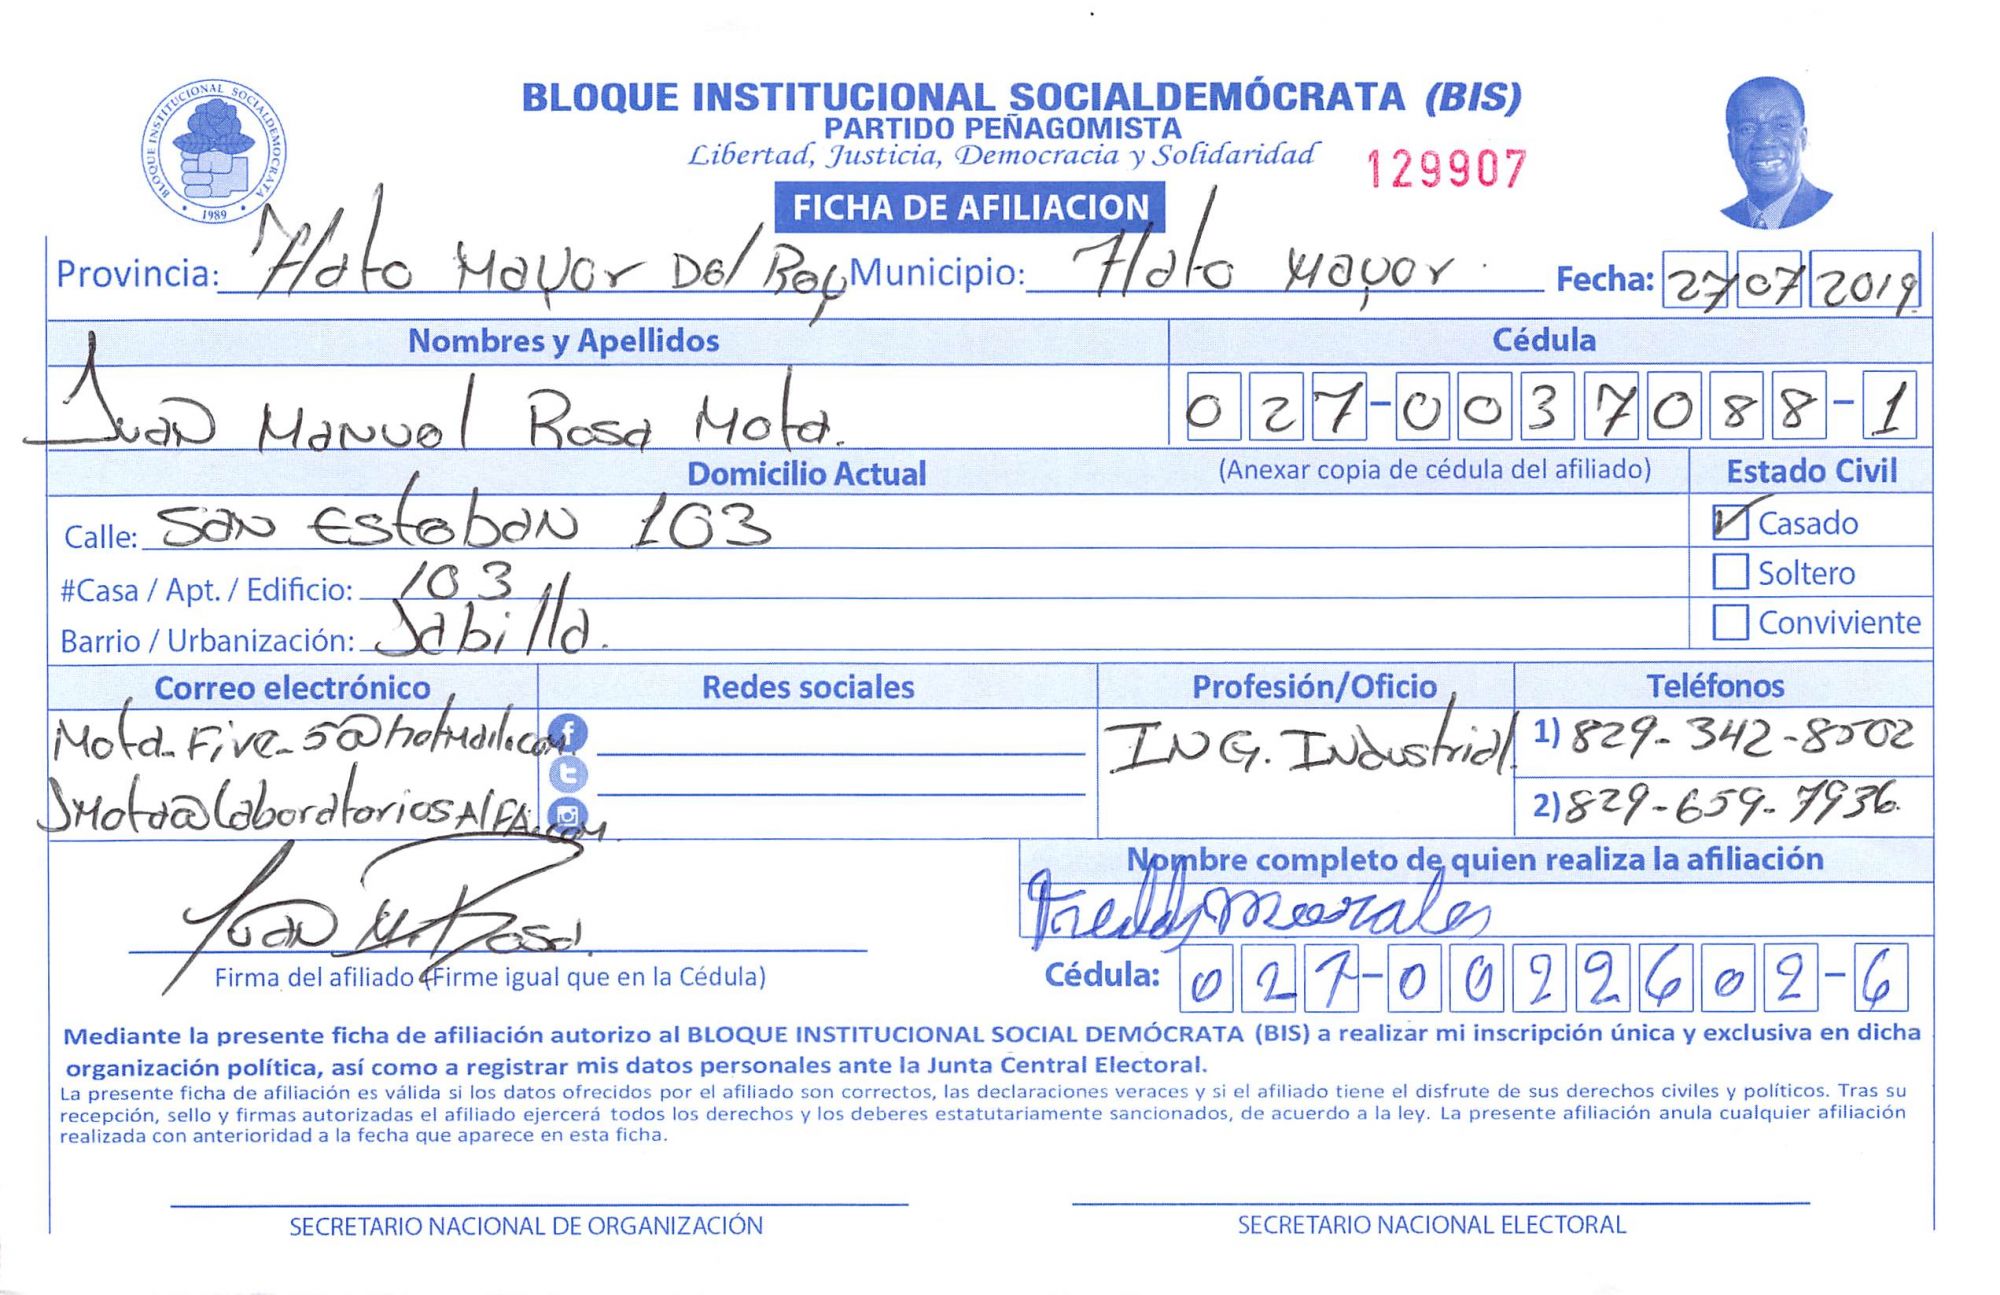 BLOQUE INSTITUCIONAL SOCIALDEMÓCRATA
1989
BLOQUE INSTITUCIONAL SOCIALDEMÓCRATA (BIS)
PARTIDO PEÑAGOMISTA
Libertad, Justicia, Democracia y Solidaridad
129907
FICHA DE AFILIACION
Provincia: Hato Mayor Del Rey Municipio: Hato Mayor. Fecha: 27 07 2019
Nombres y Apellidos Cédula
Juan Manuel Rosa Mota. 027-0037088-1
Domicilio Actual (Anexar copia de cédula del afiliado) Estado Civil
Calle: San Esteban 103 Casado
#Casa / Apt. / Edificio: 103 Soltero
Barrio / Urbanización: Jabilla. Conviviente
Correo electrónico Redes sociales Profesión/Oficio Teléfonos
Mota_Five_5@hotmail.com ING. Industrial. 1) 829-342-8502
JMota@LaboratoriosAlFA.com 2) 829-659-7936
Nombre completo de quien realiza la afiliación
Juan M. Rosa. Freddy Morales
Firma del afiliado (Firme igual que en la Cédula) Cédula: 027-0022602-6
Mediante la presente ficha de afiliación autorizo al BLOQUE INSTITUCIONAL SOCIAL DEMÓCRATA (BIS) a realizar mi inscripción única y exclusiva en dicha
organización política, así como a registrar mis datos personales ante la Junta Central Electoral.
La presente ficha de afiliación es válida si los datos ofrecidos por el afiliado son correctos, las declaraciones veraces y si el afiliado tiene el disfrute de sus derechos civiles y políticos. Tras su
recepción, sello y firmas autorizadas el afiliado ejercerá todos los derechos y los deberes estatutariamente sancionados, de acuerdo a la ley. La presente afiliación anula cualquier afiliación
realizada con anterioridad a la fecha que aparece en esta ficha.
SECRETARIO NACIONAL DE ORGANIZACIÓN SECRETARIO NACIONAL ELECTORAL